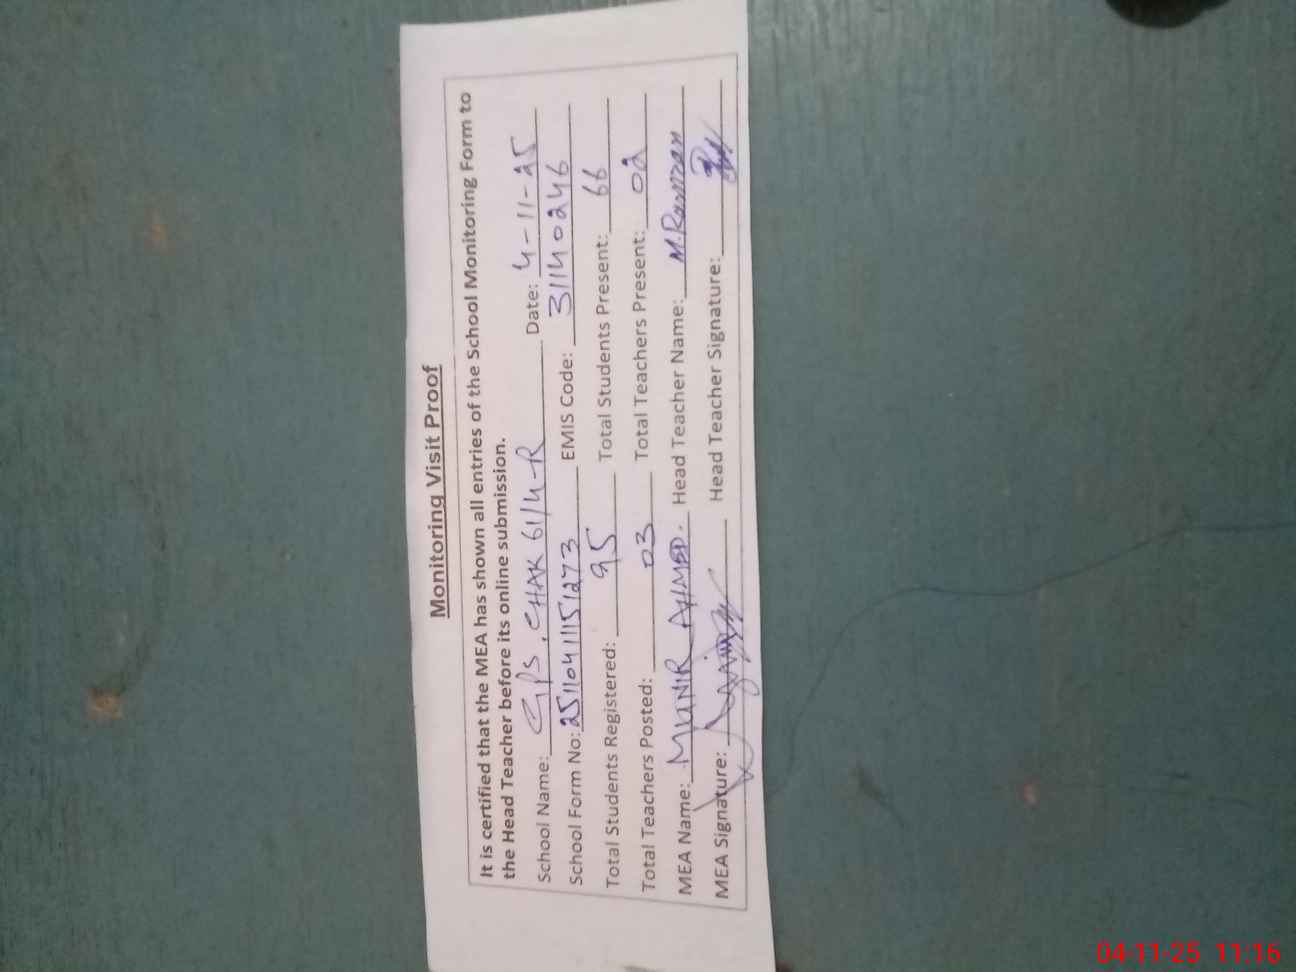 Monitoring Visit Proof
It is certified that the MEA has shown all entries of the School Monitoring Form to
the Head Teacher before its online submission.
School Name: GPS, CHAK 61/4-R Date: 4-11-25
School Form No: 25110411151273 EMIS Code: 31140246
Total Students Registered: 95 Total Students Present: 66
Total Teachers Posted: 03 Total Teachers Present: 02
MEA Name: MUNIR AHMED. Head Teacher Name: M. Ramzan
MEA Signature: Head Teacher Signature:
04-11-25 11:16